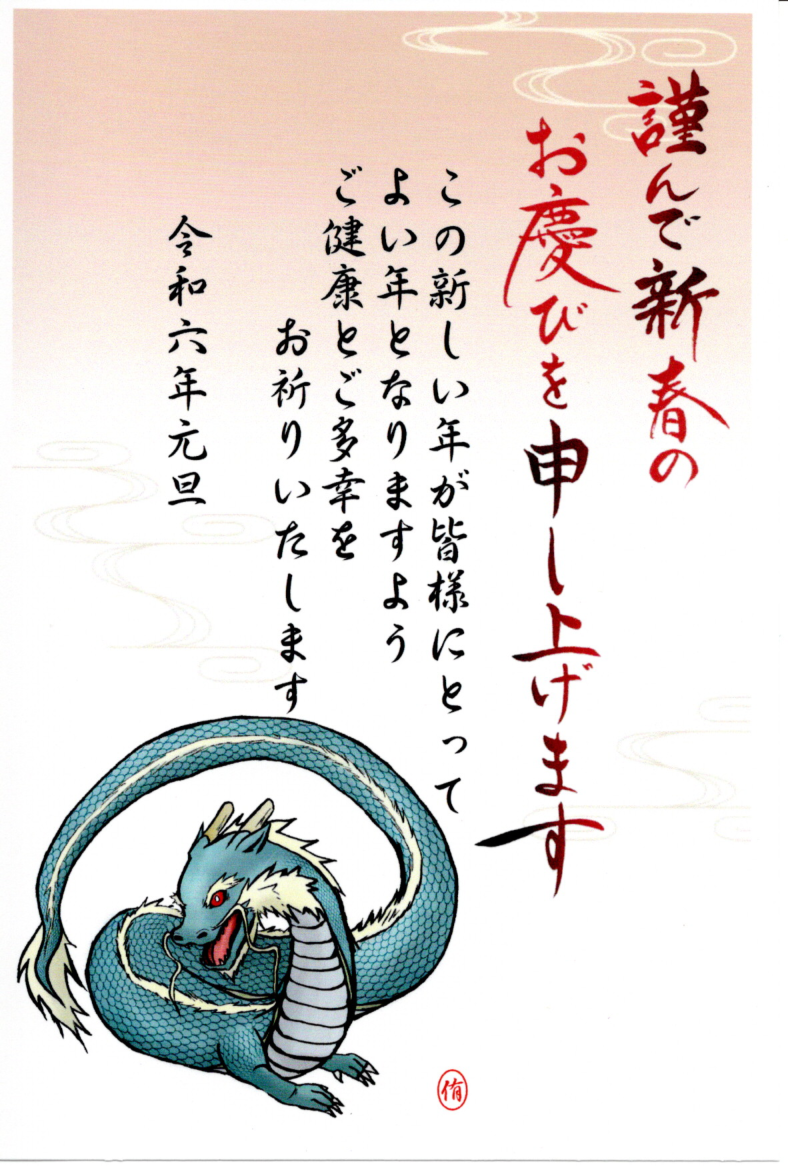 謹んで新春の
お慶びを申し上げます
この新しい年が皆様にとって
よい年となりますよう
ご健康とご多幸を
お祈りいたします
令和六年元旦
侑